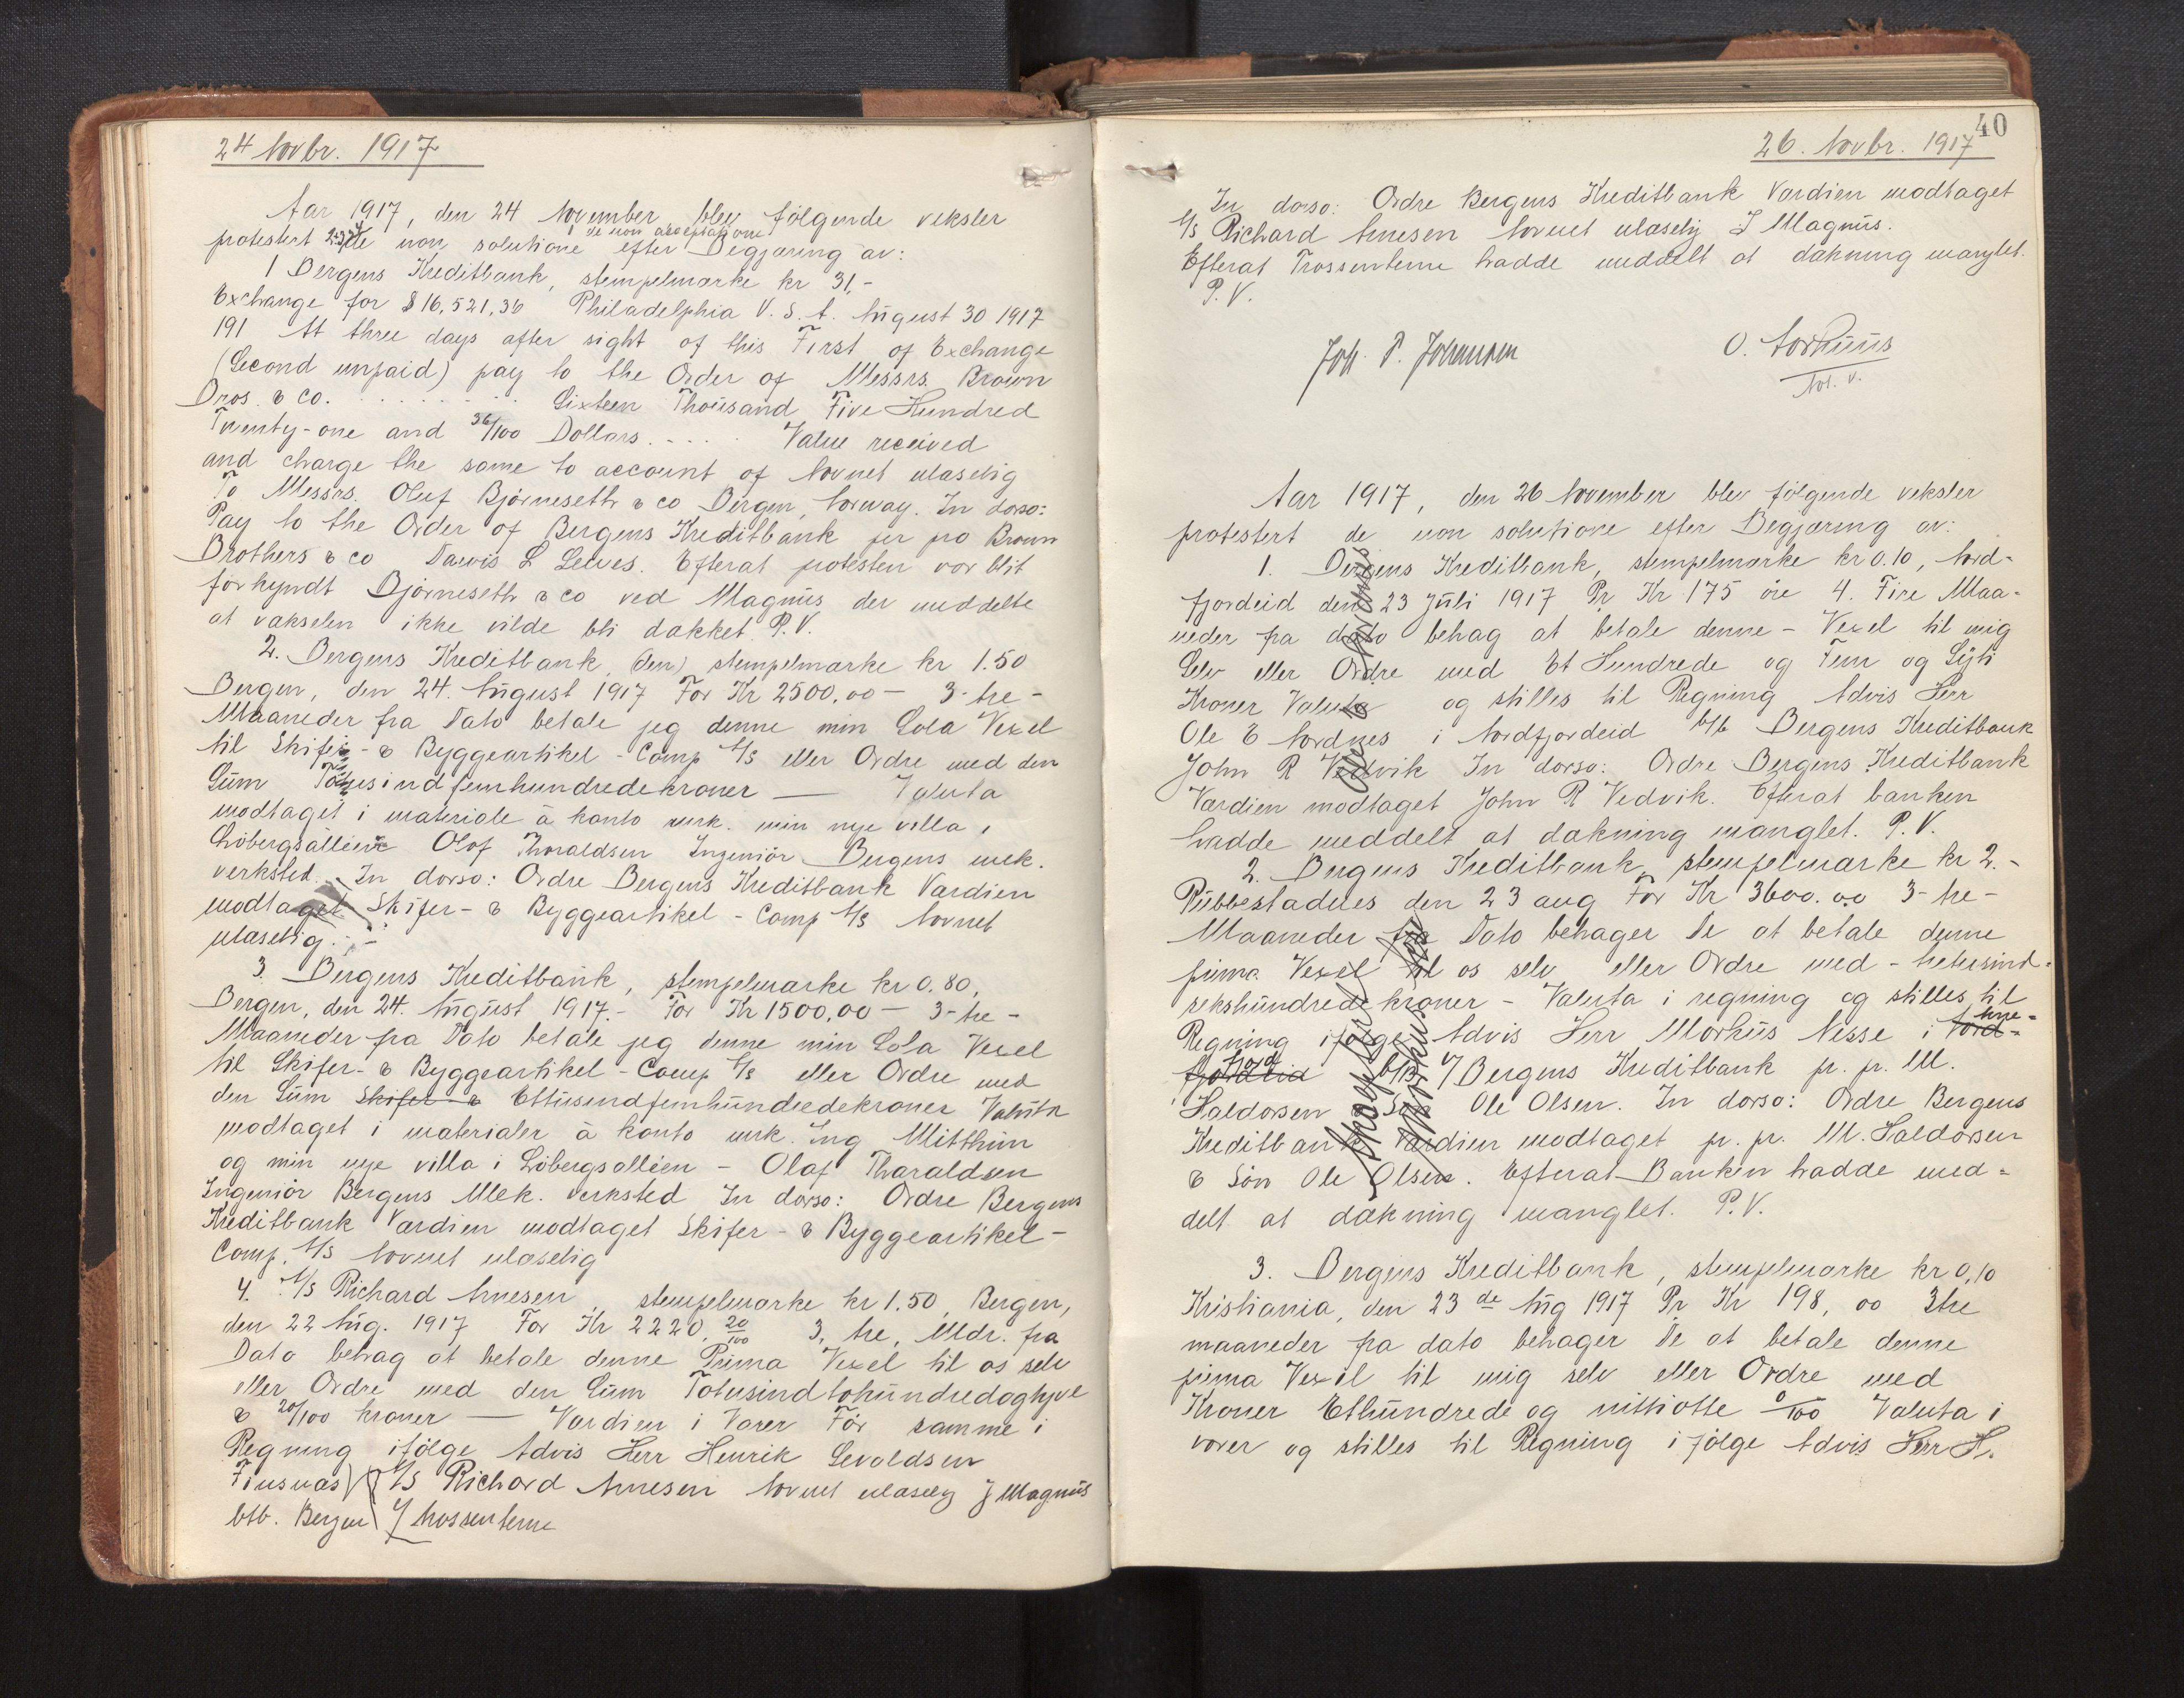 24 Novbr. 1917
Aar 1917, den 24 November blev følgende veksler
de non acceptatione
protestert 2,3,4 de non solutione efter Begjæring av:
1 Bergens Kreditbank, stempelmærke kr 31,-
Exchange for $16,521,36 Philadelphia U. S. A. August 30 1917
191 At three days after sight of this First of Exchange
(Second unpaid) pay to the Order of Messrs. Brown
Bros. & Co. . . . . . . . . Sixteen Thousand Five Hundred
Twenty-one and 36/100 Dollars. - . . . Value received
and charge the same to account of Navnet ulæselig
To Messrs. Oluf Bjørneseth & Co Bergen, Norway. In dorso:
Pay to the Order of Bergens Kreditbank per pro Brown
Brothers & Co L Selves. Efterat protesten var blit
forkyndt Bjørneseth & Co ved Magnus der meddelte
at vækselen ikke vilde bli dækket P. V.
2. Bergens Kreditbank, (den) stempelmærke kr 1.50
Bergen, den 24. August 1917 For Kr 2500.00 - 3-tre-
Maaneder fra Dato betale jeg denne min Sola Vexel
til Skifer- & Byggeartikel-Comp A/S eller Ordre med den
Sum Totusindfemhundredekroner — Valuta
modtaget i materiale á konto mrk. min nye villa,
Løbergsalleen Olof Tharaldsen Ingeniør Bergens mek.
verksted. In dorso: Ordre Bergens Kreditbank Værdien
modtaget Skifer- & Byggeartikel-Comp A/S Navnet
ulæselig. -
3. Bergens Kreditbank, stempelmærke kr 0.80,
Bergen, den 24. August 1917.- For Kr 1500,00 - 3-tre-
Maaneder fra Dato betale jeg denne min Sola Vexel
til Skifer- & Byggeartikel-Comp A/S eller Ordre med
den Sum Skifer- & Ettusendfemhundredekroner Valuta
modtaget i materialer á konto mrk. Ing Mitthun
og min nye villa i Løbergsalleen - Olaf Tharaldsen
Ingeniør Bergens Mek. verksted In dorso: Ordre Bergens
Kreditbank Værdien modtaget Skifer- & Byggeartikel-
Comp. A/S Navnet ulæselig
4. A/S Richard Arnesen, stempelmærke kr 1.50, Bergen,
den 22 Aug. 1917 For Kr 2220, 20/100 3, tre, Mdr. fra
Dato behag at betale denne Prima Vexel til os selv
eller Ordre med den Sum Totusindtohundredogtyve
& 20/100 kroner — Værdien i Varer For samme i
Regning ifølge Advis Herr Henrik Sevaldsen
Finsnæs A/S Richard Arnesen Navnet ulæselig J Magnus
btb. Bergen
40
26. Novbr. 1917
In dorso: Ordre Bergens Kreditbank Værdien modtaget
A/S Richard Arnesen Navnet ulæselig J Magnus.
Efterat Trassenterne hadde meddelt at dækning manglet.
P. V.
Joh. P. Johannsen
O. Aarhuus
Not. v.
Aar 1917, den 26 November blev følgende veksler
protestert de non solutione efter Begjæring av:
1. Bergens Kreditbank, stempelmærke kr 0.10, Nord-
fjordeid den 23 Juli 1917 Pr Kr 175 øre 4. Fire Maa-
neder fra dato behag at betale denne - Vexel til mig
Selv eller Ordre med Et Hundrede og Fem og Sytti
Kroner Valuta og stilles til Regning Advis Herr
Ole E Nordnes i Nordfjordeid btb Bergens Kreditbank
John R Vedvik In dorso: Ordre Bergens Kreditbank
Værdien modtaget John R Vedvik. Efterat banken
hadde meddelt at dækning manglet. P. V.
2. Bergens Kreditbank, stempelmærke kr 2.-
Rubbestadnes den 23 aug For Kr 3600.00 3-tre-
Maaneder fra Dato behager De at betale denne
prima Vexel til os selv eller Ordre med - tretusind-
sekshundredekroner - Valuta i regning og stilles til
Regning ifølge Advis Herr Markus Nesse i Nord-
fjordeid Bergens Kreditbank pr. pr. M.
Haldorsen & Søn Ole Olsen. In dorso: Ordre Bergens
Kreditbank Værdien modtaget pr. pr. M. Haldorsen
& Søn Ole Olsen. Efterat Banken hadde med-
delt at dækning manglet. P. V.
3. Bergens Kreditbank, stempelmærke kr 0,10
Kristiania, den 23 de Aug 1917 Pr Kr 198,00 3tre
maaneder fra dato behager De at betale denne
prima Vexel til mig selv eller Ordre med
Kroner Ethundrede og nittiotte 0/100 Valuta i
varer og stilles til Regning i følge Advis Herr H.